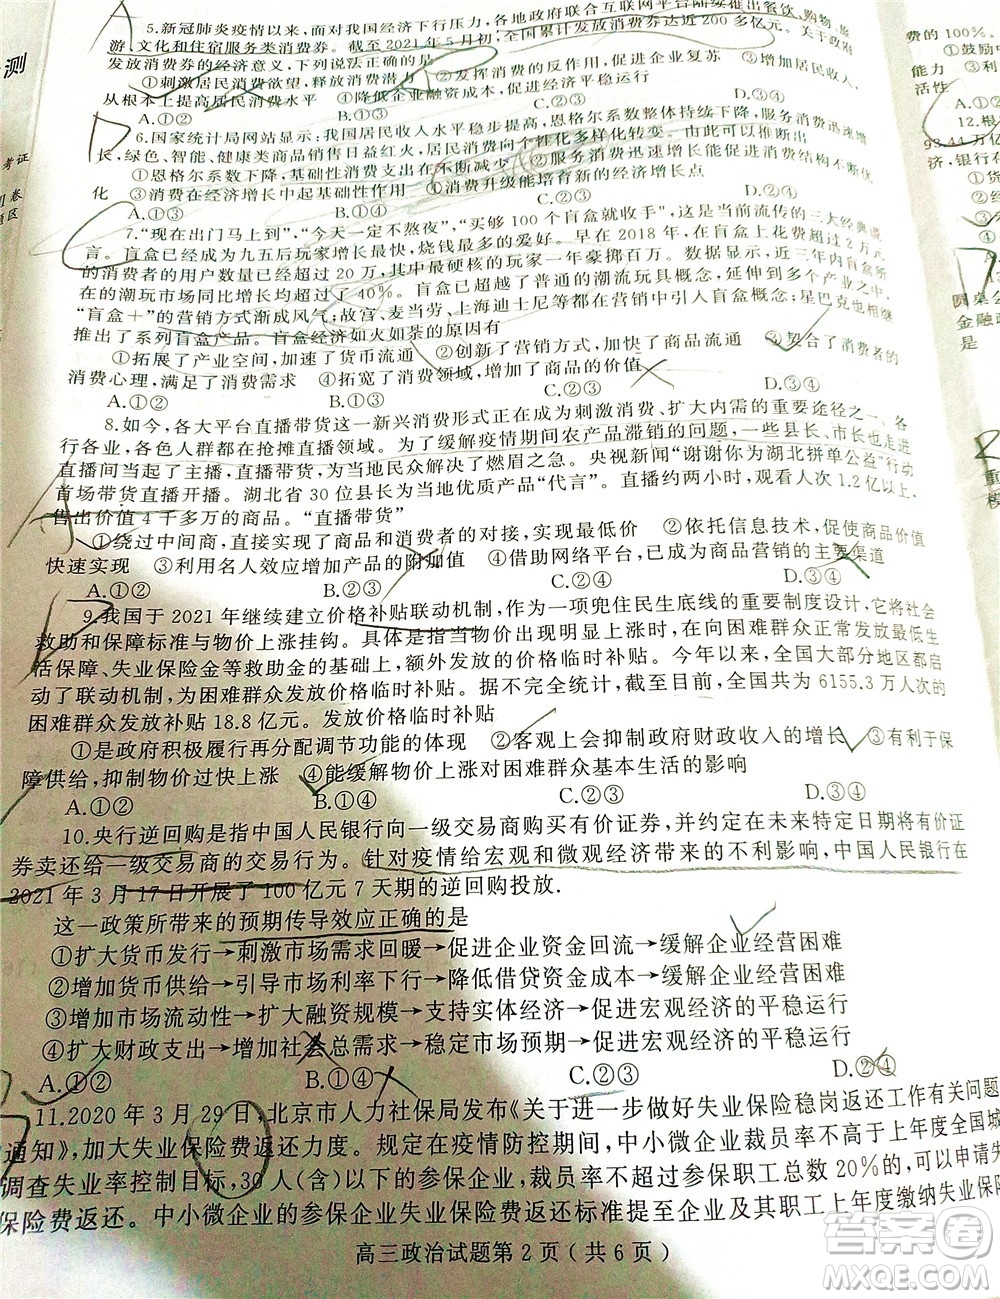 5.新冠肺炎疫情以来，面对经济下行压力，各地政府联合互联网平台陆续推出餐饮、购物、旅
游、文化和住宿服务类消费券。截至2021年5月初，全国累计发放消费券达近200多亿元。关于政府
发放消费券的经济意义，下列说法正确的是
①刺激居民消费欲望，释放消费潜力 ②发挥消费的反作用，促进企业复苏 ③增加居民收入，
从根本上提高居民消费水平 ④降低企业融资成本，促进经济平稳运行
A.①② B.①③ C.②④ D.③④
6.国家统计局网站显示：我国居民收入水平稳步提高，恩格尔系数整体持续下降，服务消费迅速增
长，绿色、智能、健康类商品销售日益红火，居民消费向个性化多样化转变。由此可以推断出
①恩格尔系数降低，基础性消费支出在不断减少 ②服务消费迅速增长促进消费结构高级
化 ③消费在经济增长中起基础性作用 ④消费升级能培育新的经济增长点
A.①③ B.①④ C.②③ D.②④
7.“现在出门马上到”，“今天一定不熬夜”，“买够100个盲盒就收手”，这是当前流传的三大经典谎
言。盲盒已经成为九五后玩家增长最快，烧钱最多的爱好。早在2018年，在盲盒上花费超过2万元
的消费者的用户数量已经达到20万，其中最硬核的玩家一年豪掷百万。数据显示，近三年内盲盒所
在的潮玩市场同比增长超过了40%。盲盒已经成为普遍的潮流玩具消费方式，并延伸到更多领域，
“盲盒＋”的营销方式渐成风气；故宫、麦当劳、上海迪士尼等在营销中引入盲盒概念；星巴克也相继
推出了系列盲盒产品。盲盒经济如火如荼的原因有
①拓展了产业空间，加速了货币流通 ②创新了营销方式，加快了商品流通 ③契合了消费者的
消费心理，满足了消费需求 ④拓宽了消费领域，增加了商品的价值
A.①② B.①④ C.②③ D.③④
8.如今，各大平台直播带货这一新兴消费形式正在成为刺激消费、扩大内需的重要途径之一，各
行各业，各色人群都在抢摊直播领域。为了缓解疫情期间农产品滞销的问题，一些县长、市长也走进
直播间当起了主播，直播带货，为当地民众解决了燃眉之急。央视新闻“谢谢你为湖北拼单公益”行动
首场带货直播开播。湖北省30位县长为当地优质产品“代言”。直播约两小时，观看人次1.2亿以上，
售出价值4千多万的商品。“直播带货”
①绕过中间商，直接实现了商品和消费者的对接，实现最低价 ②依托信息技术，促使商品价值
快速实现 ③利用名人效应增加产品的附加值 ④借助网络平台，已成为商品营销的主要渠道
A.①② B.②③ C.②④ D.③④
9.我国于2021年继续建立价格补贴联动机制，作为一项兜住民生底线的重要制度设计，它将社会
救助和保障标准与物价上涨挂钩。具体是指当物价出现明显上涨时，在向困难群众正常发放最低生
活保障、失业保险金等救助金的基础上，额外发放价格临时补贴。今年以来，全国大部分地区都启
动了联动机制，为困难群众发放价格临时补贴。据不完全统计，截至目前，全国共为6155.3万人次的
困难群众发放补贴18.8亿元。发放价格临时补贴
①是政府积极履行再分配调节功能的体现 ②客观上会抑制政府财政收入的增长 ③有利于保
障供给，抑制物价过快上涨 ④能缓解物价上涨对困难群众基本生活的影响
A.①② B.①④ C.②③ D.③④
10.央行逆回购是指中国人民银行向一级交易商购买有价证券，并约定在未来特定日期将有价证
券卖还给一级交易商的交易行为。针对疫情给宏观和微观经济带来的不利影响，中国人民银行在
2021年3月17日开展了100亿元7天期的逆回购投放.
这一政策所带来的预期传导效应正确的是
①扩大货币发行→刺激市场需求回暖→促进企业资金回流→缓解企业经营困难
②增加货币供给→引导市场利率下行→降低借贷资金成本→缓解企业经营困难
③增加市场流动性→扩大融资规模→支持实体经济→促进宏观经济的平稳运行
④扩大财政支出→增加社会总需求→稳定市场预期→促进宏观经济的平稳运行
A.①② B.①④ C.②③ D.②④
11.2020年3月29日，北京市人力社保局发布《关于进一步做好失业保险稳岗返还工作有关问题
通知》，加大失业保险费返还力度。规定在疫情防控期间，中小微企业裁员率不高于上年度全国城
调查失业率控制目标，30人（含）以下的参保企业，裁员率不超过参保职工总数20%的，可以申请失
保险费返还。中小微企业的参保企业失业保险费返还标准提至企业及其职工上年度缴纳失业保险
高三政治试题第2页（共6页）
测
考证
卷
区
费的100%。
①鼓励
能力
活性
A.①②
12.根
93.44万亿
济，银行存
①货
A.①
圆桌公
金融政
是
重
模
答案圈
MXQE.COM